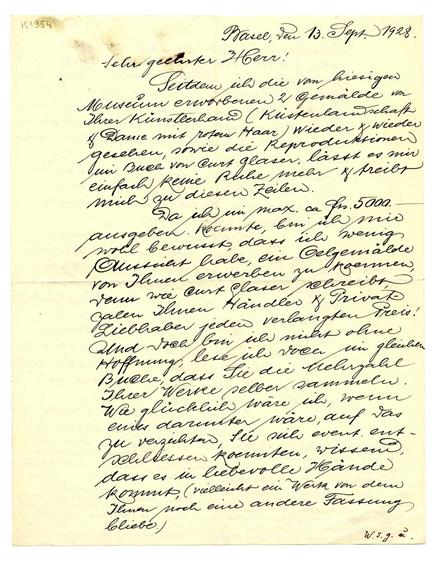 K1954
Basel, den 13. Sept. 1928.
Sehr geehrter Herr!
Seitdem ich die vom hiesigen
Museum erworbenen 2 Gemälde von
Ihrer Künstlerhand (Küstenlandschaft
& Dame mit rotem Haar) wieder & wieder
gesehen, sowie die Reproduktionen
im Buch von Curt Glaser, lässt es mir
einfach keine Ruhe mehr & treibt
mich zu diesen Zeilen.
Da ich nur max. ca frs. 5000.—
ausgeben koennte, bin ich mir
wohl bewusst, dass ich wenig
Aussicht habe, ein Oelgemälde
von Ihnen erwerben zu koennen,
denn wie Curt Glaser schreibt,
zalen Ihnen Händler & Privat-
Liebhaber jeden verlangten Preis!
Und doch bin ich nicht ohne
Hoffnung, lese ich doch im gleichen
Buche, dass Sie die Mehrzahl
Ihrer Werke selber sammeln.
Wie glücklich wäre ich, wenn
eines darunter wäre, auf das
zu verzichten, Sie sich event. ent-
schliessen koennten, wissend,
dass es in liebevolle Hände
kommt, (vielleicht ein Werk von dem
Ihnen noch eine andere Fassung
bliebe.)
W. s. g. u.